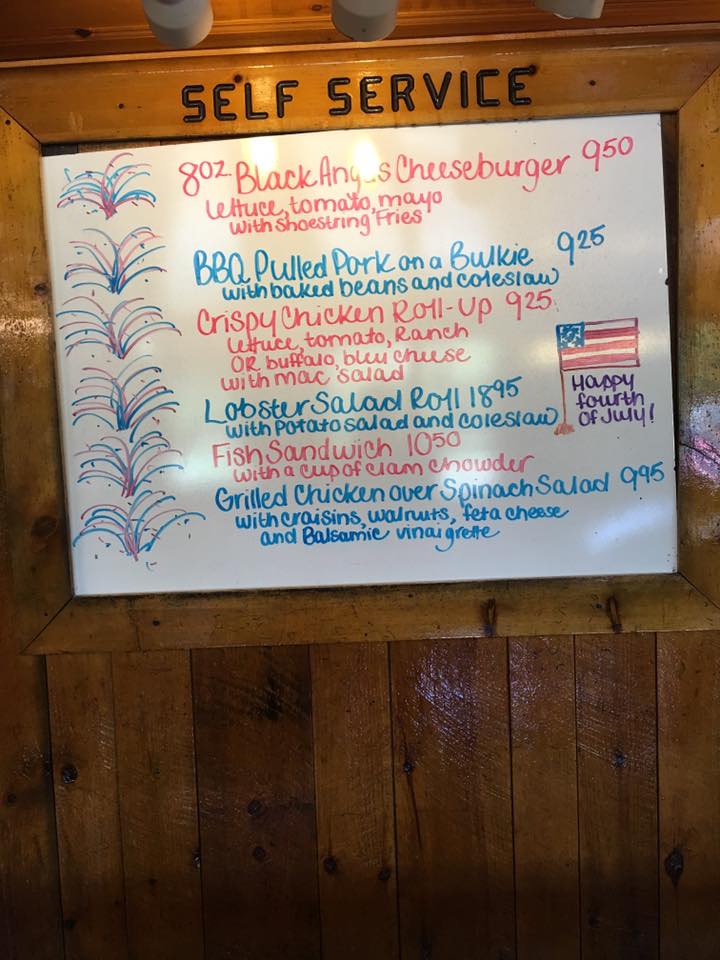 SELF SERVICE
8oz. Black Angus Cheeseburger 950
lettuce, tomato, mayo
with Shoestring Fries
BBQ Pulled Pork on a Bulkie 925
with baked beans and coleslaw
Crispy Chicken Roll-Up 925
lettuce, tomato, Ranch
OR buffalo, bleu cheese
with mac salad
Lobster Salad Roll 1895
with Potato salad and coleslaw
Fish Sandwich 1050
with a cup of clam chowder
Grilled Chicken over Spinach Salad 995
with craisins, walnuts, feta cheese
and Balsamic vinaigrette
Happy
fourth
OF July!